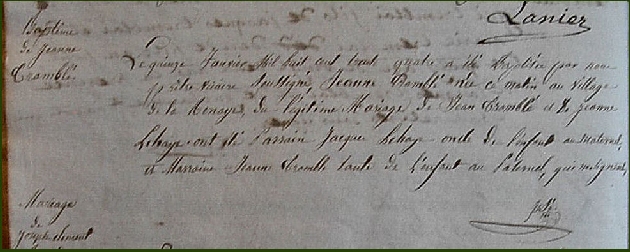 Lanier
Baptème
de Jeanne
Tramblé
Le quinze Janvier Mil huit cent trente quatre a été Baptisée par nous
prêtre vicaire Soussigné, Jeanne Tramblé née ce matin au village
de la du légitime Mariage de Jean Tramblé et de Jeanne
Lehaye ont été Parrain Jacque Lehaye oncle de l'enfant au Maternel,
et Marraine Jeanne Tramblé tante de L'enfant au Paternel, qui ne signent,
Mariage
de
Joseph